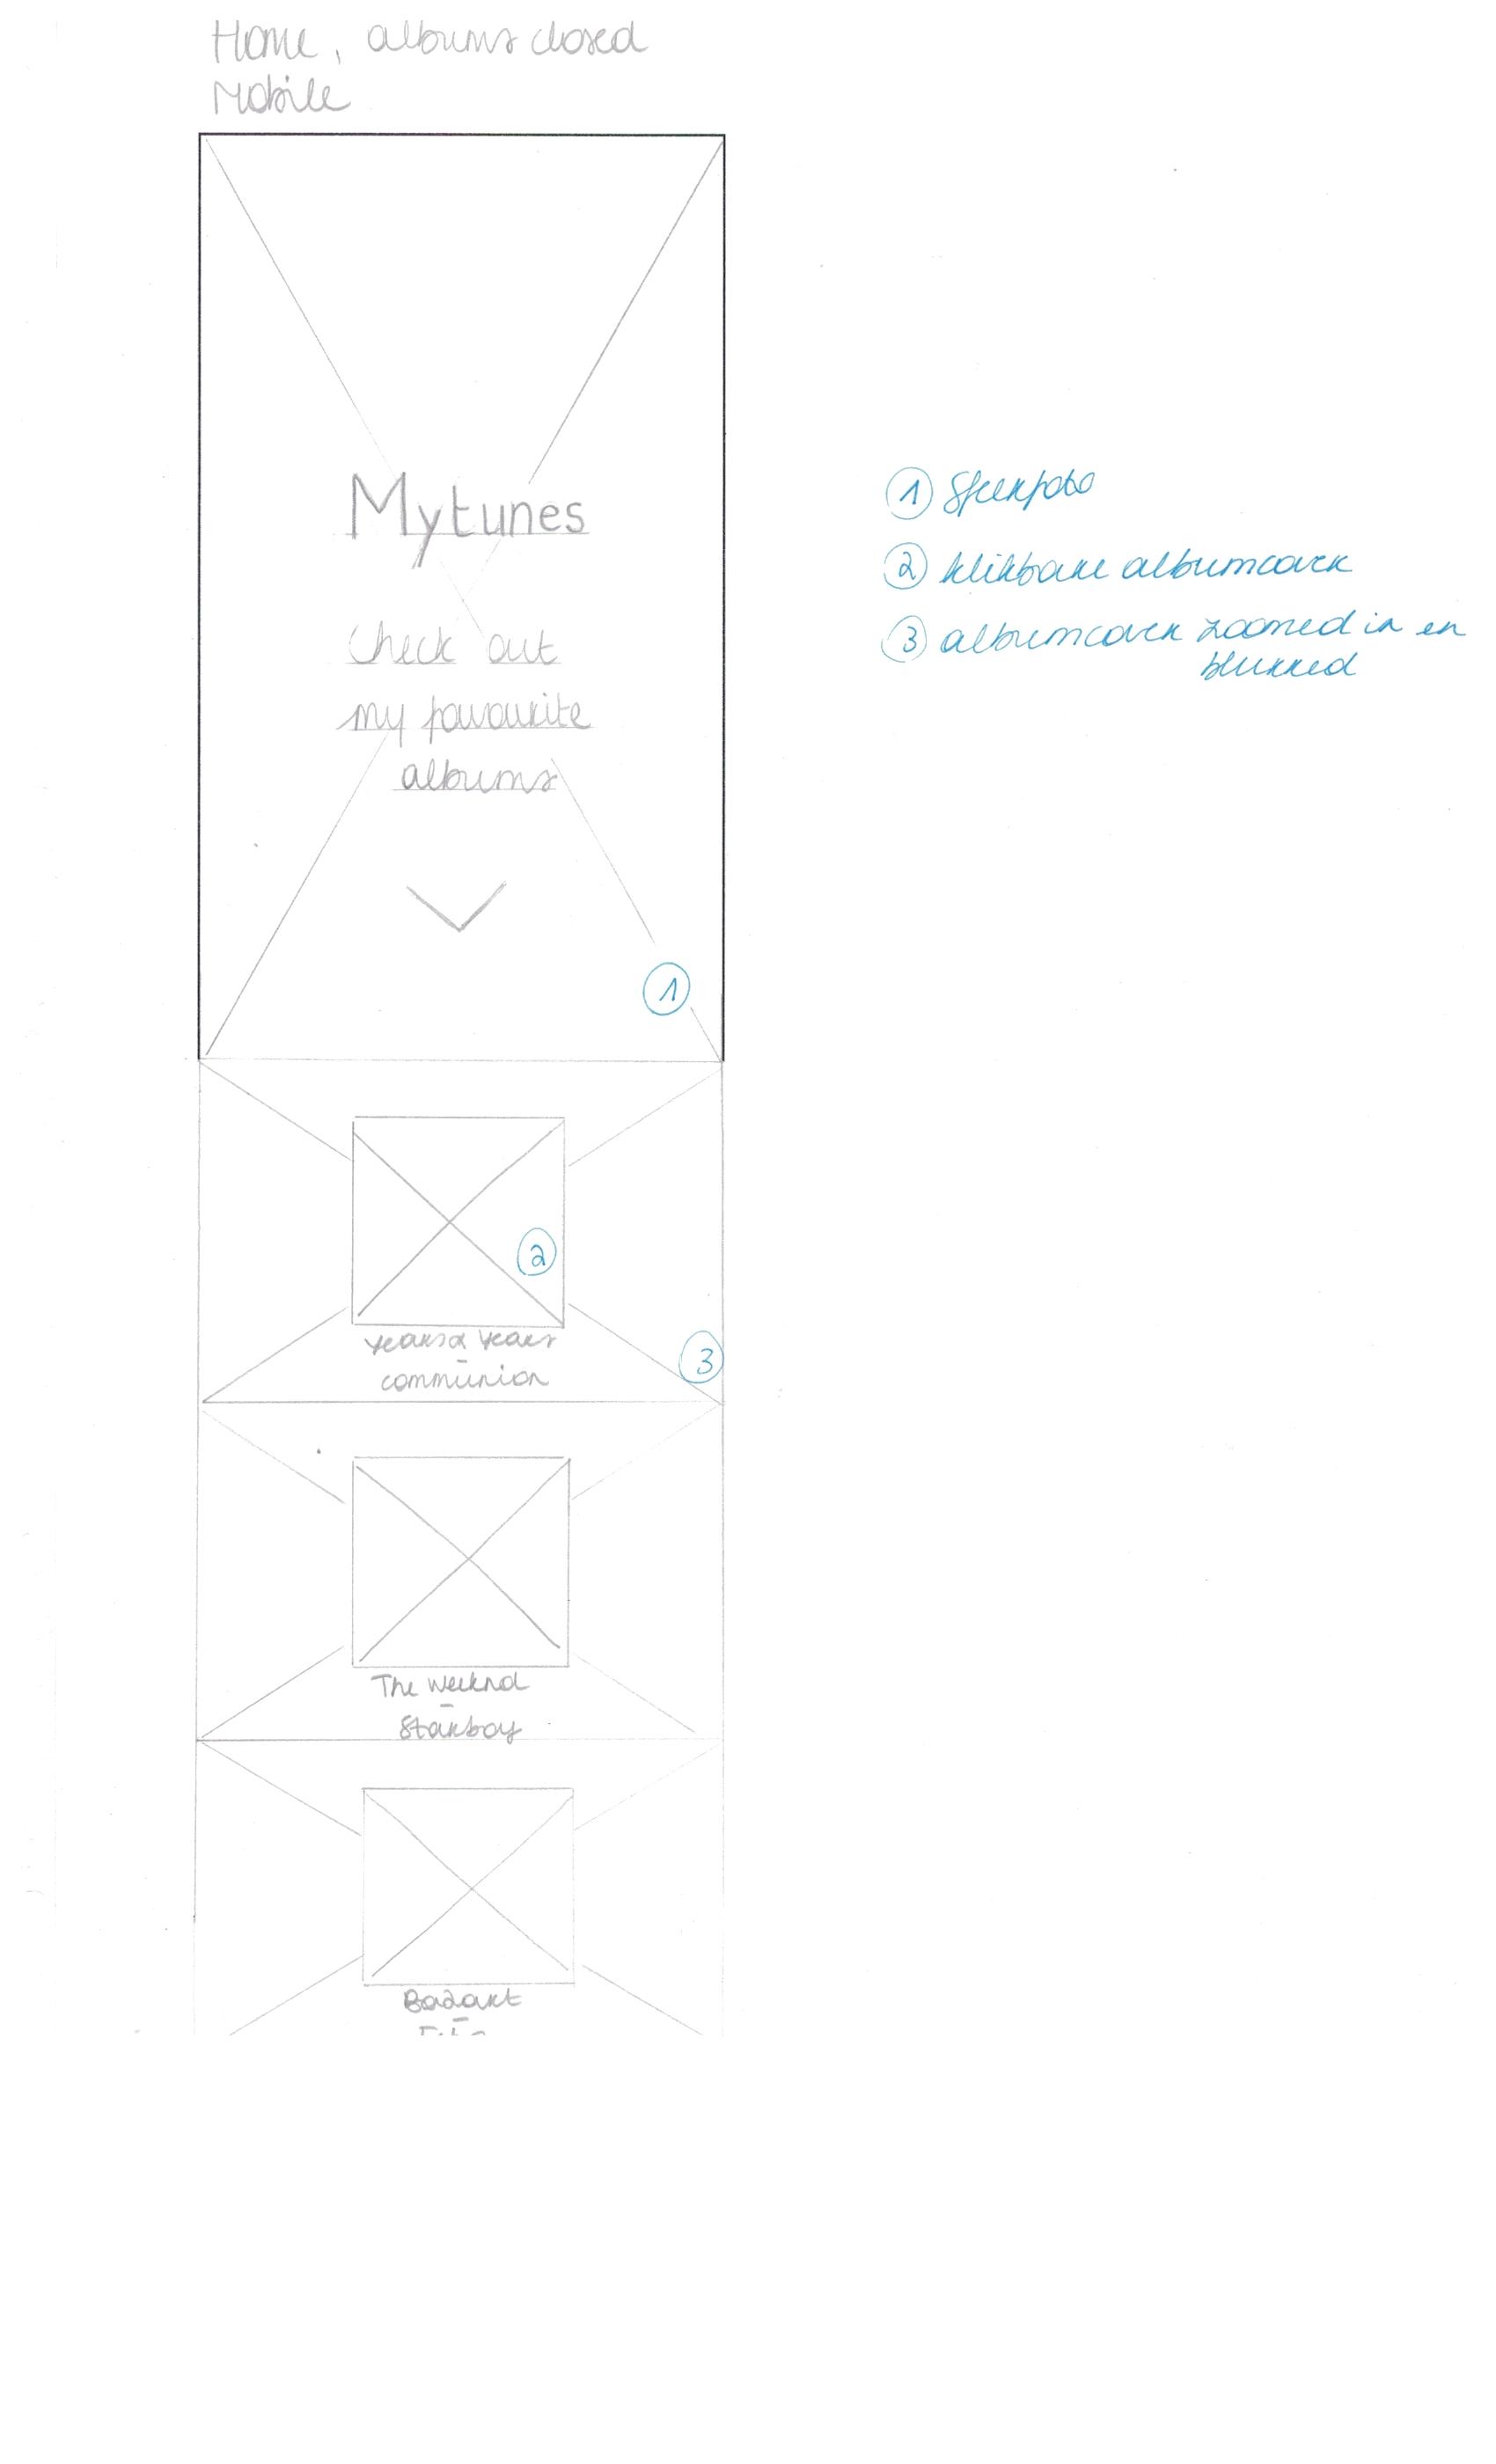 Home, albums closed
Mobile
Mytunes
Check out
my favourite
albums
1
2
Years & Years
-
communion
3
The weeknd
-
Starboy
Bazart
-
1 Sfeerfoto
2 klikbare albumcover
3 albumcover zoomed in en
blurred